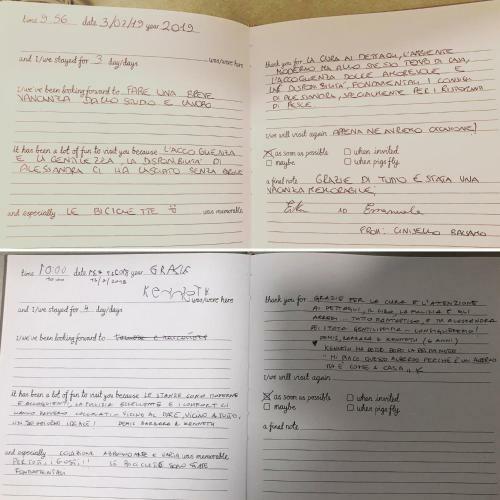 time 9.56 date 3/02/19 year 2019
was/were here
and I/we stayed for 3 day/days
I/we've been looking forward to FARE UNA BREVE
VACANZA DALLO STUDIO E LAVORO.
it has been a lot of fun to visit you because L'ACCOGLIENZA
E LA GENTILEZZA, LA DISPONIBILITA' DI
ALESSANDRA CI HA LASCIATO SENZA PAROLE
and especially LE BICICLETTE was memorable
thank you for LA CURA AI DETTAGLI, L'AMBIENTE
MODERNO MA ALLO STESSO TEMPO DI CASA,
L'ACCOGLIENZA DOLCE AMOREVOLE E
DISPONIBILITA', FONDAMENTALI I CONSIGLI
DI ALESSANDRA, SPECIALMENTE PER I RISTORANTI
DI PESCE.
I/we will visit again APPENA NE AVREMO OCCASIONE!
as soon as possible when invited
maybe when pigs fly
a final note GRAZIE DI TUTTO È STATA UNA
VACANZA MEMORABILE!
Emanuele
FROM: CINISELLO BALSAMO
time 10:00 date year GRAZIE
was/were here
and I/we stayed for 4 day/days
I/we've been looking forward to
it has been a lot of fun to visit you because LE STANZE SONO MODERNE
E ACCOGLIENTI, LA PULIZIA ECCELLENTE E I COMFORT CI
HANNO DAVVERO VICINO AL MARE, VICINO A TUTTO,
IDEALE! DENIS BARBARA & KENNETH
and especially COLAZIONE ABBONDANTE E VARIA was memorable
PER TUTTI I GUSTI!! LE BICICLETTE SONO STATE
FONDAMENTALI
thank you for GRAZIE PER LA CURA E L'ATTENZIONE
AI DETTAGLI, IL CIBO, LA PULIZIA E GLI
ARREDI... TUTTO FANTASTICO, E TU ALESSANDRA
SEI STATA GENTILISSIMA - CONSIGLIEREMO!
DENIS, BARBARA & KENNETH (6 ANNI)
KENNETH HA DETTO DOPO LA
"MI PIACE QUESTO ALBERGO PERCHÉ È UN ALBERGO
MA È COME A CASA"
I/we will visit again
as soon as possible when invited
maybe when pigs fly
a final note